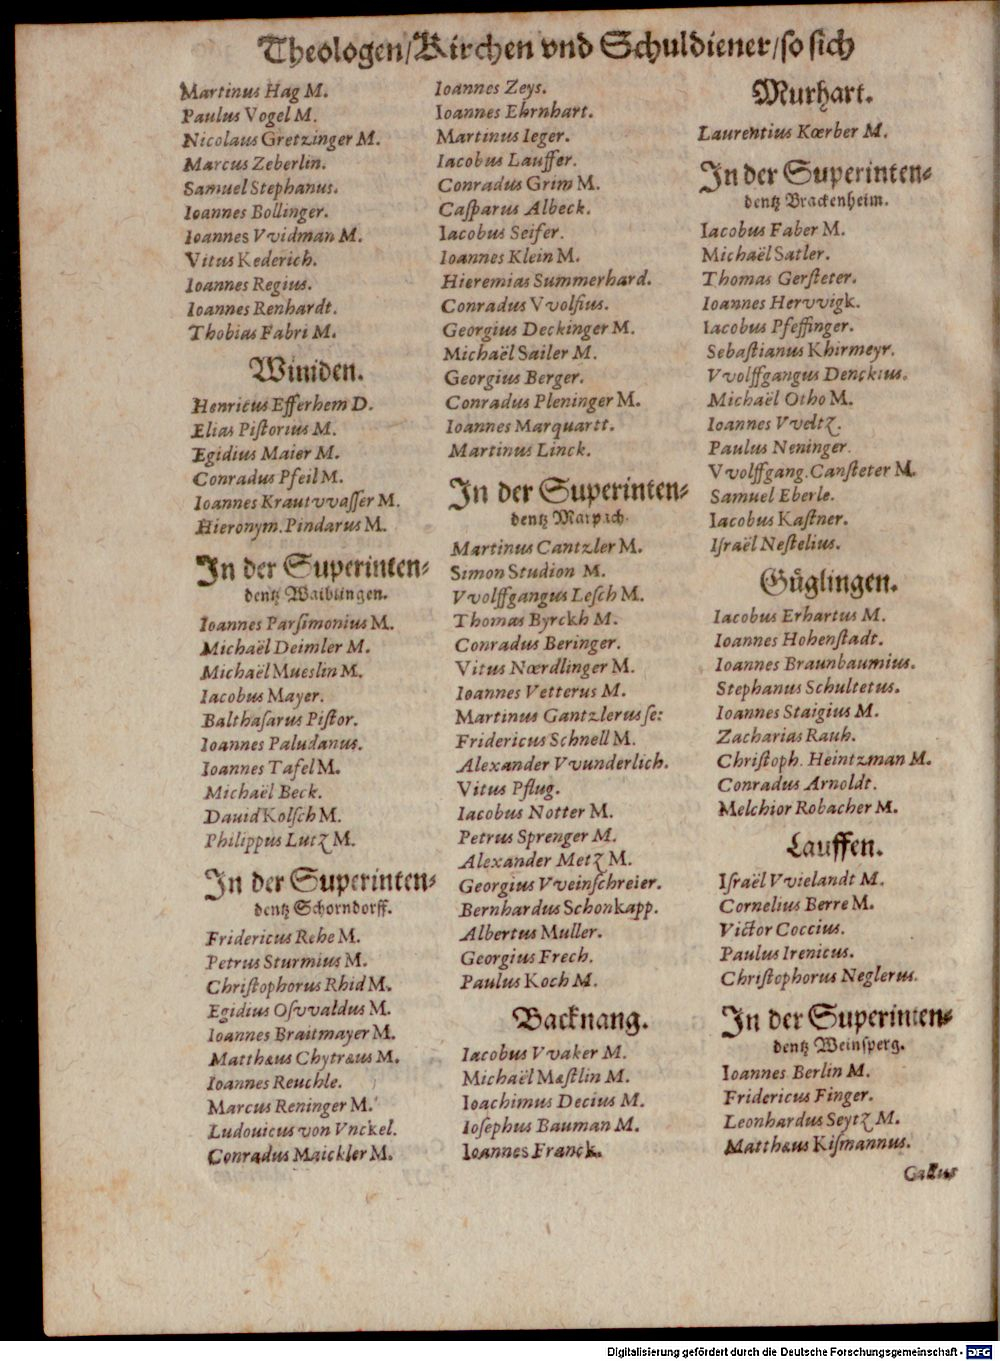 Theologen/Kirchen vnd Schuldiener/so sich
Martinus Hag M.
Paulus Vogel M.
Nicolaus Gretzinger M.
Marcus Zeberlin.
Samuel Stephanus.
Ioannes Bollinger.
Ioannes Vvidman M.
Vitus Kederich.
Ioannes Regius.
Ioannes Renhardt.
Thobias Fabri M.
Winiden.
Henricus Efferhem D.
Elias Piſtorius M.
Egidius Maier M.
Conradus Pfeil M.
Ioannes Krautvvaſſer M.
Hieronym. Pindarus M.
In der Superinten-
dentz Waiblingen.
Ioannes Parſimonius M.
Michaël Deimler M.
Michaël Mueslin M.
Iacobus Mayer.
Balthaſarus Piſtor.
Ioannes Paludanus.
Ioannes Tafel M.
Michaël Beck.
Dauid Kolſch M.
Philippus Lutz M.
In der Superinten-
dentz Schorndorff.
Fridericus Rehe M.
Petrus Sturmius M.
Chriſtophorus Rhid M.
Egidius Oſvvaldus M.
Ioannes Braitmayer M.
Matthæus Chytræus M.
Ioannes Reuchle.
Marcus Reninger M.
Ludouicus von Vnckel.
Conradus Maickler M.
Ioannes Zeys.
Ioannes Ehrnhart.
Martinus Ieger.
Iacobus Lauffer.
Conradus Grim M.
Caſparus Albeck.
Iacobus Seifer.
Ioannes Klein M.
Hieremias Summerhard.
Conradus Vvolfius.
Georgius Deckinger M.
Michaël Sailer M.
Georgius Berger.
Conradus Pleninger M.
Ioannes Marquartt.
Martinus Linck.
In der Superinten-
dentz Marpach.
Martinus Cantzler M.
Simon Studion M.
Vvolffgangus Leſch M.
Thomas Byrckh M.
Conradus Beringer.
Vitus Nœrdlinger M.
Ioannes Vetterus M.
Martinus Gantzlerus ſe:
Fridericus Schnell M.
Alexander Vvunderlich.
Vitus Pflug.
Iacobus Notter M.
Petrus Sprenger M.
Alexander Metz M.
Georgius Vveinſchreier.
Bernhardus Schonkapp.
Albertus Muller.
Georgius Frech.
Paulus Koch M.
Backnang.
Iacobus Vvaker M.
Michaël Mæſtlin M.
Ioachimus Decius M.
Ioſephus Bauman M.
Ioannes Franck.
Murhart.
Laurentius Kœrber M.
In der Superinten-
dentz Brackenheim.
Iacobus Faber M.
Michaël Satler.
Thomas Gerſteter.
Ioannes Hervvigk.
Iacobus Pfeffinger.
Sebaſtianus Khirmeyr.
Vvolffgangus Denckius.
Michaël Otho M.
Ioannes Vveltz.
Paulus Neninger.
Vvolffgang. Canſteter M.
Samuel Eberle.
Iacobus Kaſtner.
Iſraël Neſtelius.
Güglingen.
Iacobus Erhartus M.
Ioannes Hohenſtadt.
Ioannes Braunbaumius.
Stephanus Schultetus.
Ioannes Staigius M.
Zacharias Rauh.
Chriſtoph. Heintzman M.
Conradus Arnoldt.
Melchior Robacher M.
Lauffen.
Iſraël Vvielandt M.
Cornelius Berre M.
Victor Coccius.
Paulus Irenicus.
Chriſtophorus Neglerus.
In der Superinten-
dentz Weinſperg.
Ioannes Berlin M.
Fridericus Finger.
Leonhardus Seytz M.
Matthæus Kiſmannus.
Gallus
Digitalisierung gefördert durch die Deutsche Forschungsgemeinschaft - DFG